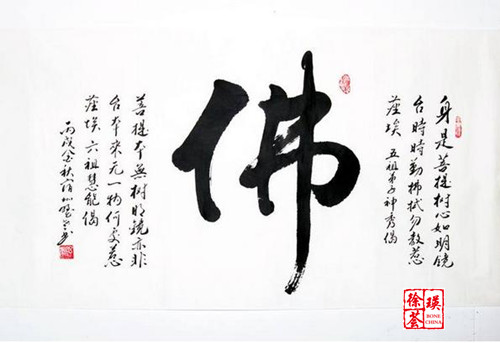 身是菩提樹心如明鏡
台時時勤拂拭勿教惹
塵埃 五祖弟子神秀偈
佛
菩提本無樹明鏡亦非
台本來无一物何處惹
塵埃 六祖慧能偈
丙戌金秋
徐瑛
荟
BONE
CHINA